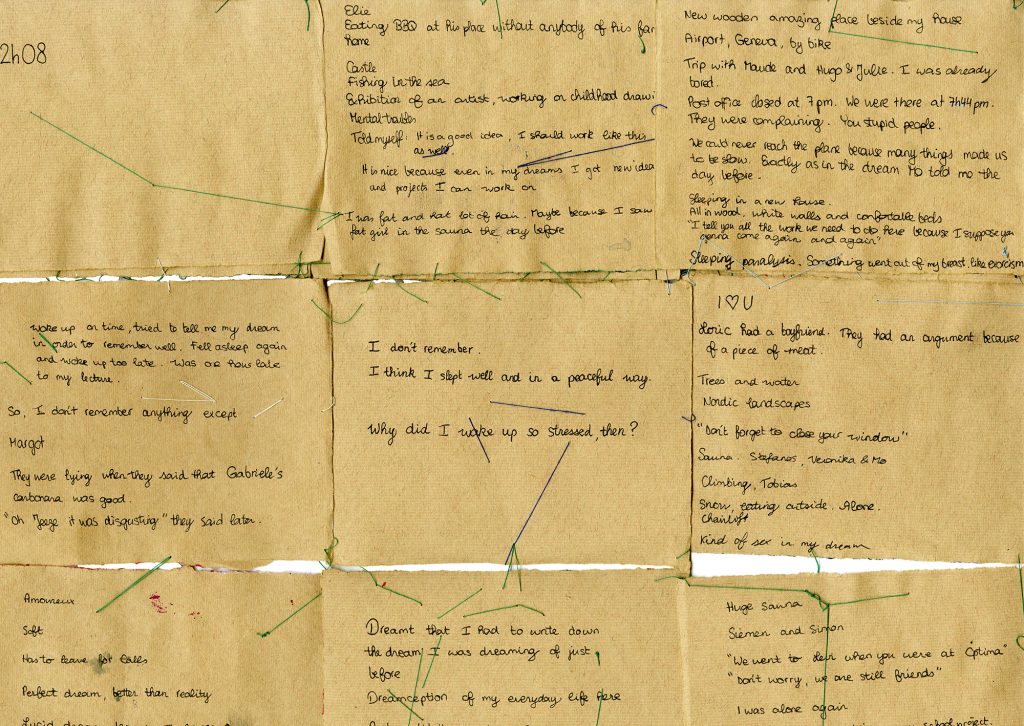 2h08
Elie
Eating BBQ at his place without anybody of his
home
Castle
Fishing in the sea
Exhibition of an artist, working on childhood
Told myself: It is a good idea, I should work like this
as well.
It is nice because even in my dreams I got new idea
and projects I can work on
I was fat and hat lot of hair. Maybe because I saw
fat girl in the sauna the day before
New wooden amazing place beside my house
Airport, Geneva, by bike
Trip with Maude and Hugo & Julie. I was already
Post office closed at 7 pm. We were there at 7h44 pm.
They were complaining. You stupid people.
We could never reach the plane because many things made us
to be slow. Exactly as in the dream Mo told me the
day before.
Sleeping in a new house.
All in wood. White walls and confortable beds
"I tell you all the work we need to do here because I suppose you
gonna come again and again"
Sleeping paralysis. Something went out of my breast, like exorcism
Woke up on time, tried to tell me my dream
in order to remember well. Fell asleep again
and woke up too late. Was one hour late
to my lecture.
So, I don't remember anything except
Margot
They were lying when they said that Gabriele's
carbonara was good.
"Oh Jeeze it was disgusting" they said later.
I don't remember.
I think I slept well and in a peaceful way.
Why did I wake up so stressed, then?
I ♡ U
Loric had a boyfriend. They had an argument because
of a piece of meat.
Trees and water
Nordic landscapes
"Don't forget to close your window"
Sauna. Stefanos, Veronika & Mo
Climbing, Tobias
Snow, eating outside. Alone.
Chairlift
Kind of sex in my dream
Amoureux
Soft
Has to leave for
Perfect dream, better than reality
Lucid
Dreamt that I had to write down
the dream I was dreaming of just
before
Dreamception of my everyday life here
Huge Sauna
Siemen and Simon
"We went to when you were at Optima"
"Don't worry, we are still friends"
I was alone again
school project.